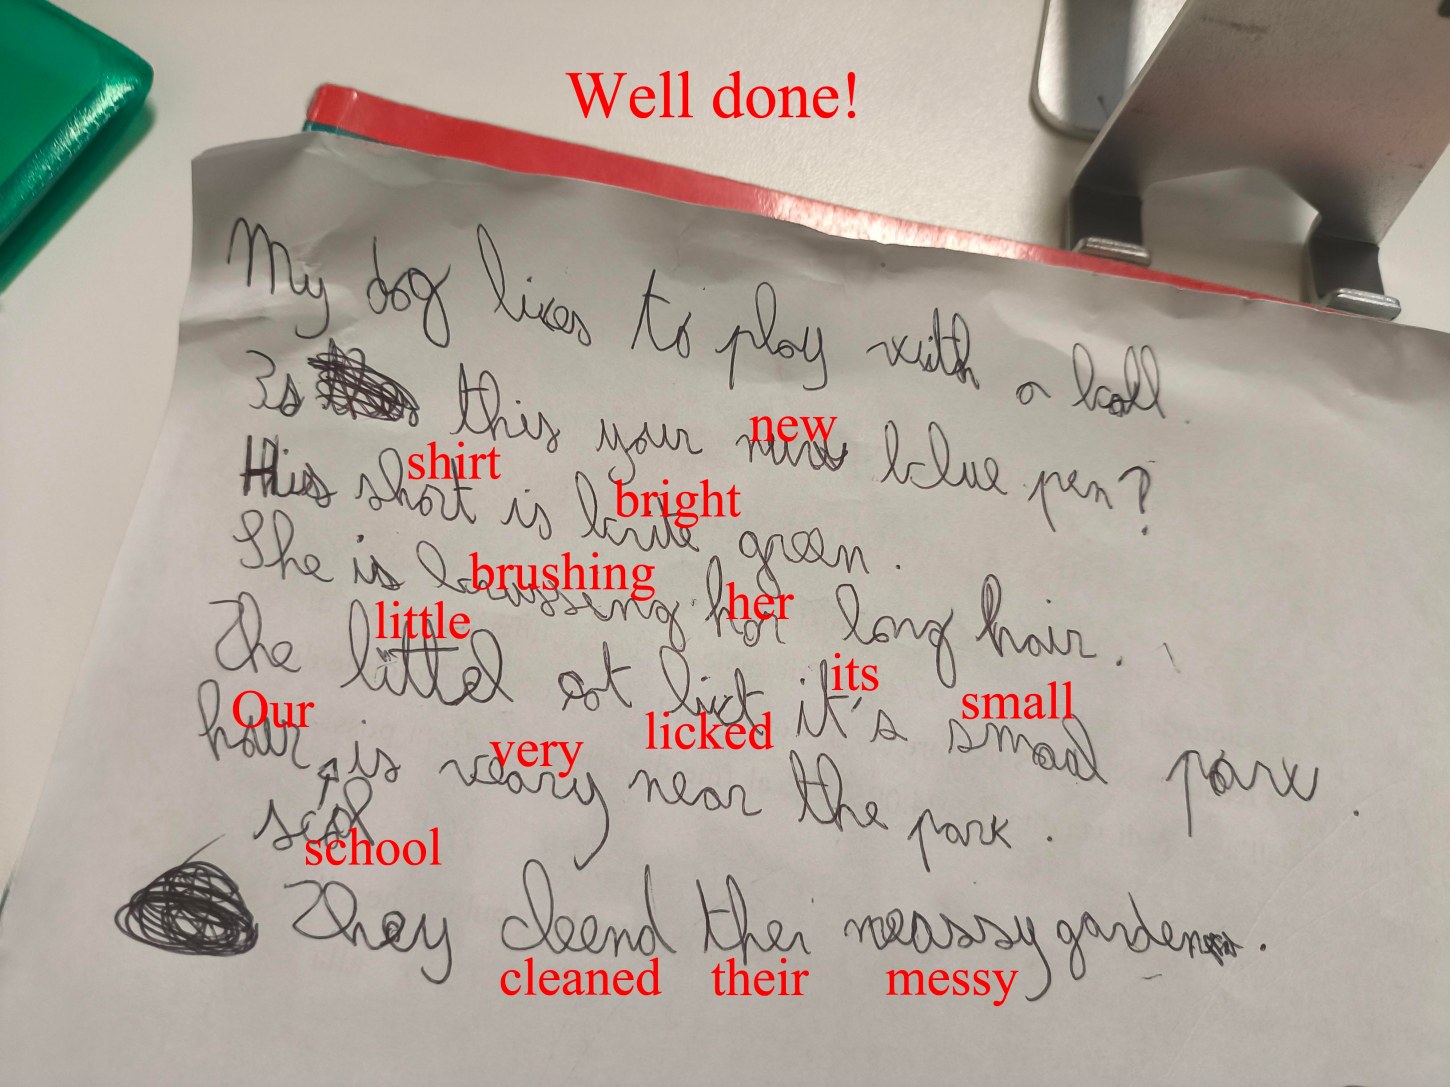 Well done!
My dog likes to play with a ball.
Is this your new blue pen?
new
shirt
This short is brite green.
bright
She is brussing her long hair.
brushing
her
little
The littel cat lict it's small paw.
its
small
licked
Our
hour is veary near the park.
very
scol
school
They cleend thei meassy garden.
cleaned their messy